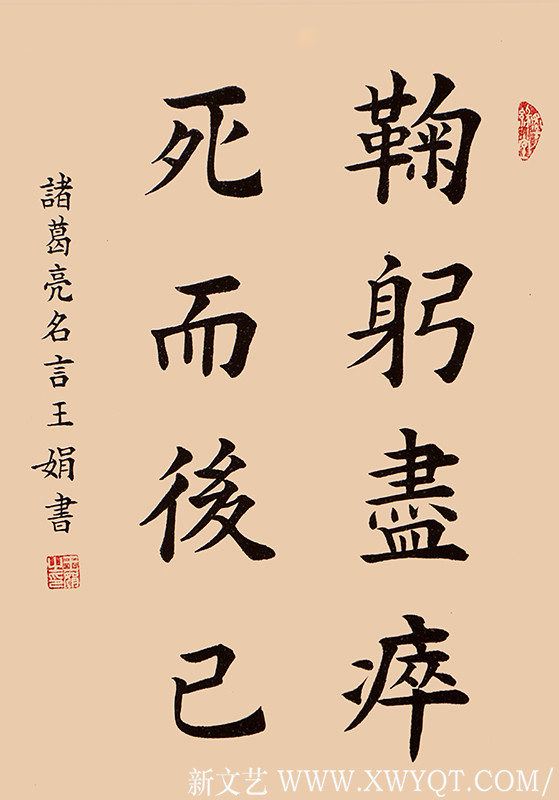 鞠躬盡瘁
死而後已
諸葛亮名言王娟書
新文艺 WWW.XWYQT.COM/